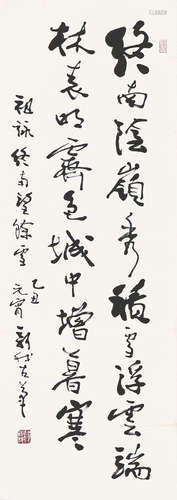 終南陰嶺秀積雪浮雲端
林表明霽色城中增暮寒
祖詠終南望餘雪
乙丑
元宵新我左筆